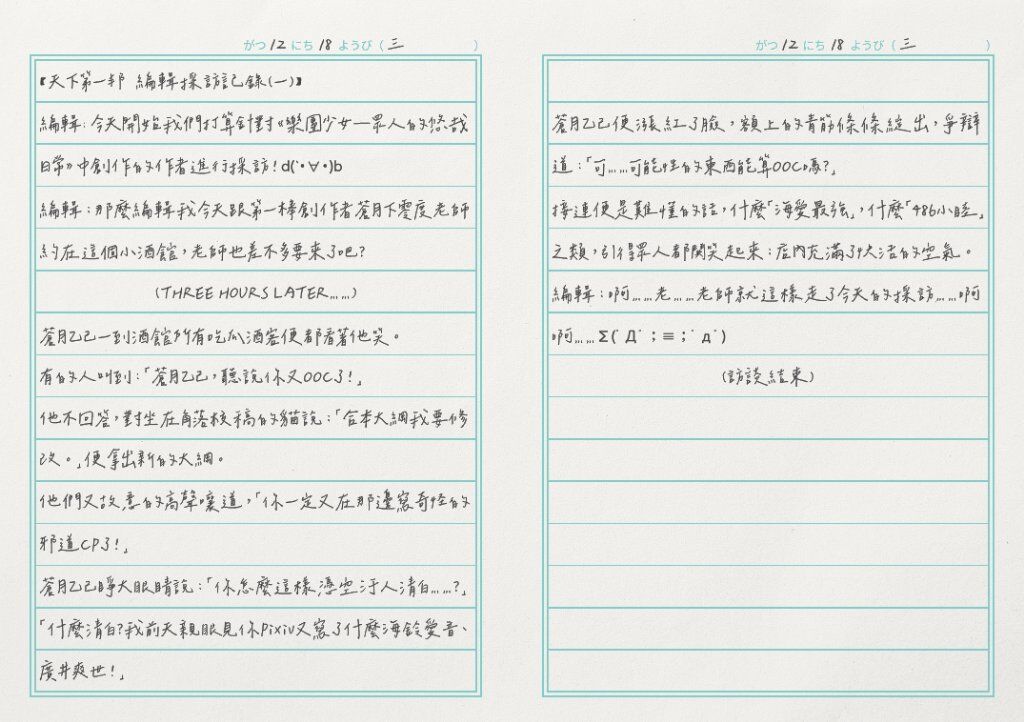 がつ 12 にち 18 ようび ( 三 )
【天下第一邦 編輯採訪記錄(一)】
編輯：今天開始我們打算針對《樂園少女—眾人的悠哉
日常》中創作的作者進行採訪！d(`･∀･)b
編輯：那麼編輯我今天跟第一棒創作者蒼月下零度老師
約在這個小酒館，老師也差不多要來了吧？
(THREE HOURS LATER……)
蒼月乙己一到酒館所有吃瓜酒客便都看著他笑。
有的人叫到：「蒼月乙己，聽說你又OOC了！」
他不回答，對坐在角落校稿的貓說：「合本大綱我要修
改。」便拿出新的大綱。
他們又故意的高聲嚷道，「你一定又在那邊寫奇怪的
邪道CP了！」
蒼月乙己睜大眼睛說：「你怎麼這樣憑空汙人清白……？」
「什麼清白？我前天親眼見你Pixiv又寫了什麼海鈴愛音、
廣井爽世！」
がつ 12 にち 18 ようび ( 三 )
蒼月乙己便漲紅了臉，額上的青筋條條綻出，爭辯
道：「可……可能怪的東西能算OOC嗎？」
接連便是難懂的話，什麼「海愛最強」，什麼「486小睦」
之類，引得眾人都鬨笑起來：店內充滿了快活的空氣。
編輯：啊……老……老師就這樣走了今天的採訪……啊
啊……Σ(ﾟДﾟ；≡；ﾟдﾟ)
(訪談結束)